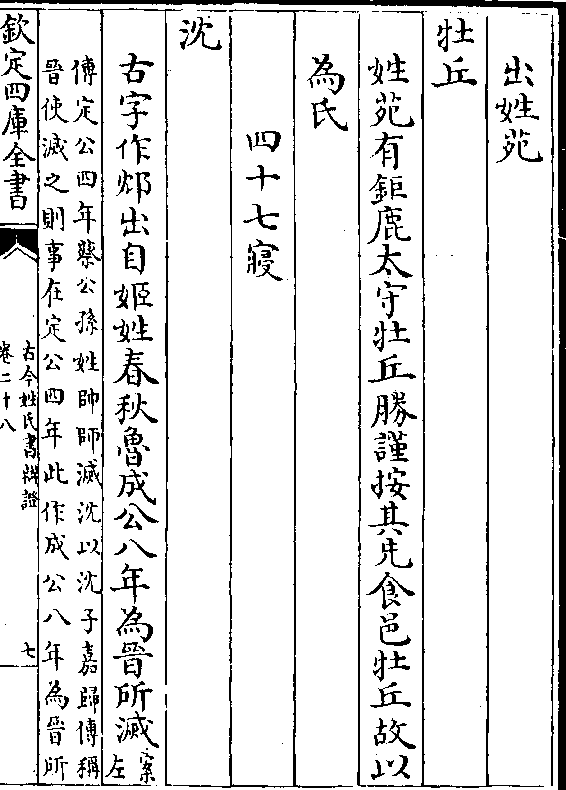 出姓苑
牡丘
姓苑有鉅鹿太守牡丘勝謹按其先食邑牡丘故以
為氏
四十七寑
沈
古字作邥出自姬姓春秋魯成公八年為晉所滅案左
傳定公四年蔡公孫姓帥師滅沈以沈子嘉歸傳稱
晉使滅之則事在定公四年此作成公八年為晉所
欽定四庫全書
古今姓氏書辨證
卷二十八
七